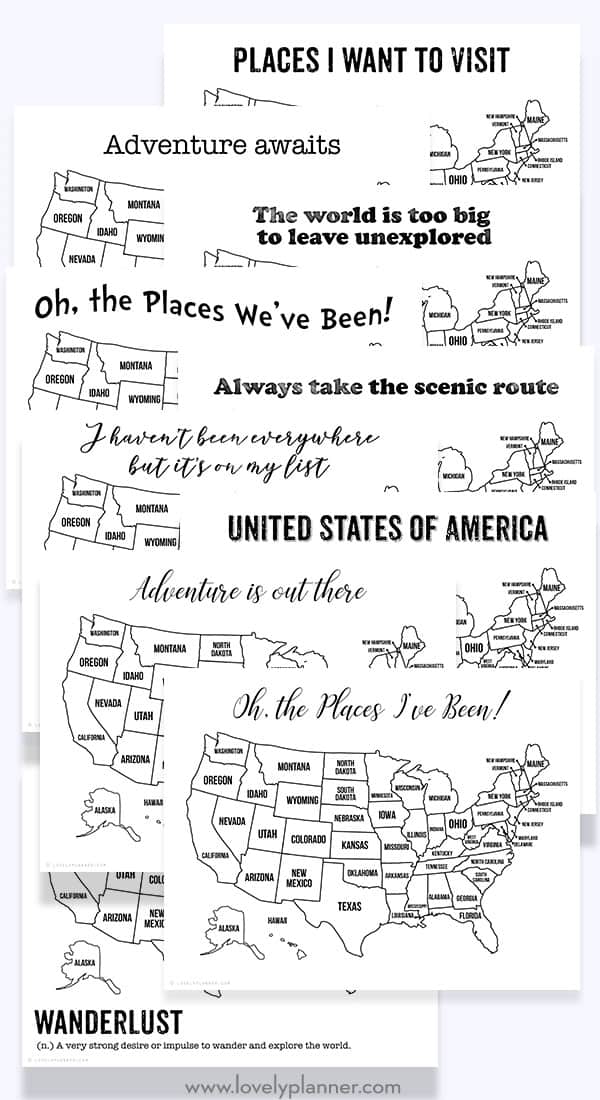 PLACES I WANT TO VISIT
NEW HAMPSHIRE
VERMONT
MAINE
MASSACHUSETTS
NEW YORK
RHODE ISLAND
CONNECTICUT
PENNSYLVANIA
NEW JERSEY
MICHIGAN
OHIO
Adventure awaits
WASHINGTON
OREGON
MONTANA
IDAHO
WYOMIN
NEVADA
The world is too big
to leave unexplored
NEW HAMPSHIRE
VERMONT
MAINE
MASSACHUSETTS
NEW YORK
RHODE ISLAND
CONNECTICUT
PENNSYLVANIA
NEW JERSEY
MICHIGAN
OHIO
Oh, the Places We've Been!
WASHINGTON
OREGON
MONTANA
IDAHO
WYOMING
Always take the scenic route
NEW HAMPSHIRE
VERMONT
MAINE
MASSACHUSETTS
NEW YORK
RHODE ISLAND
CONNECTICUT
MICHIGAN
I haven't been everywhere
but it's on my list
WASHINGTON
OREGON
MONTANA
IDAHO
WYOMING
UNITED STATES OF AMERICA
NEW HAMPSHIRE
VERMONT
MAINE
MASSACHUSETTS
NEW YORK
RHODE ISLAND
CONNECTICUT
PENNSYLVANIA
NEW JERSEY
OHIO
WEST
MARYLAND
Adventure is out there
WASHINGTON
OREGON
MONTANA
NORTH
DAKOTA
IDAHO
NEVADA
UTAH
CALIFORNIA
ARIZONA
ALASKA
HAWAII
NEW HAMPSHIRE
VERMONT
MAINE
MASSACHUSETTS
© LOVELYPLANNER.COM
Oh, the Places I've Been!
WASHINGTON
OREGON
MONTANA
IDAHO
WYOMING
NORTH
DAKOTA
SOUTH
DAKOTA
MINNESOTA
WISCONSIN
MICHIGAN
NEW HAMPSHIRE
VERMONT
MAINE
MASSACHUSETTS
NEW YORK
RHODE ISLAND
CONNECTICUT
PENNSYLVANIA
NEW JERSEY
NEVADA
UTAH
COLORADO
NEBRASKA
IOWA
ILLINOIS
INDIANA
OHIO
WEST
VIRGINIA
VIRGINIA
MARYLAND
DELAWARE
CALIFORNIA
KANSAS
MISSOURI
KENTUCKY
NORTH CAROLINA
TENNESSEE
SOUTH
CAROLINA
ARIZONA
NEW
MEXICO
OKLAHOMA
ARKANSAS
TEXAS
MISSISSIPPI
ALABAMA
GEORGIA
LOUISIANA
FLORIDA
ALASKA
HAWAII
© LOVELYPLANNER.COM
UTAH
COL
CALIFORNIA
ARIZONA
NEW
MEXIC
ALASKA
WANDERLUST
(n.) A very strong desire or impulse to wander and explore the world.
© LOVELYPLANNER.COM
www.lovelyplanner.com